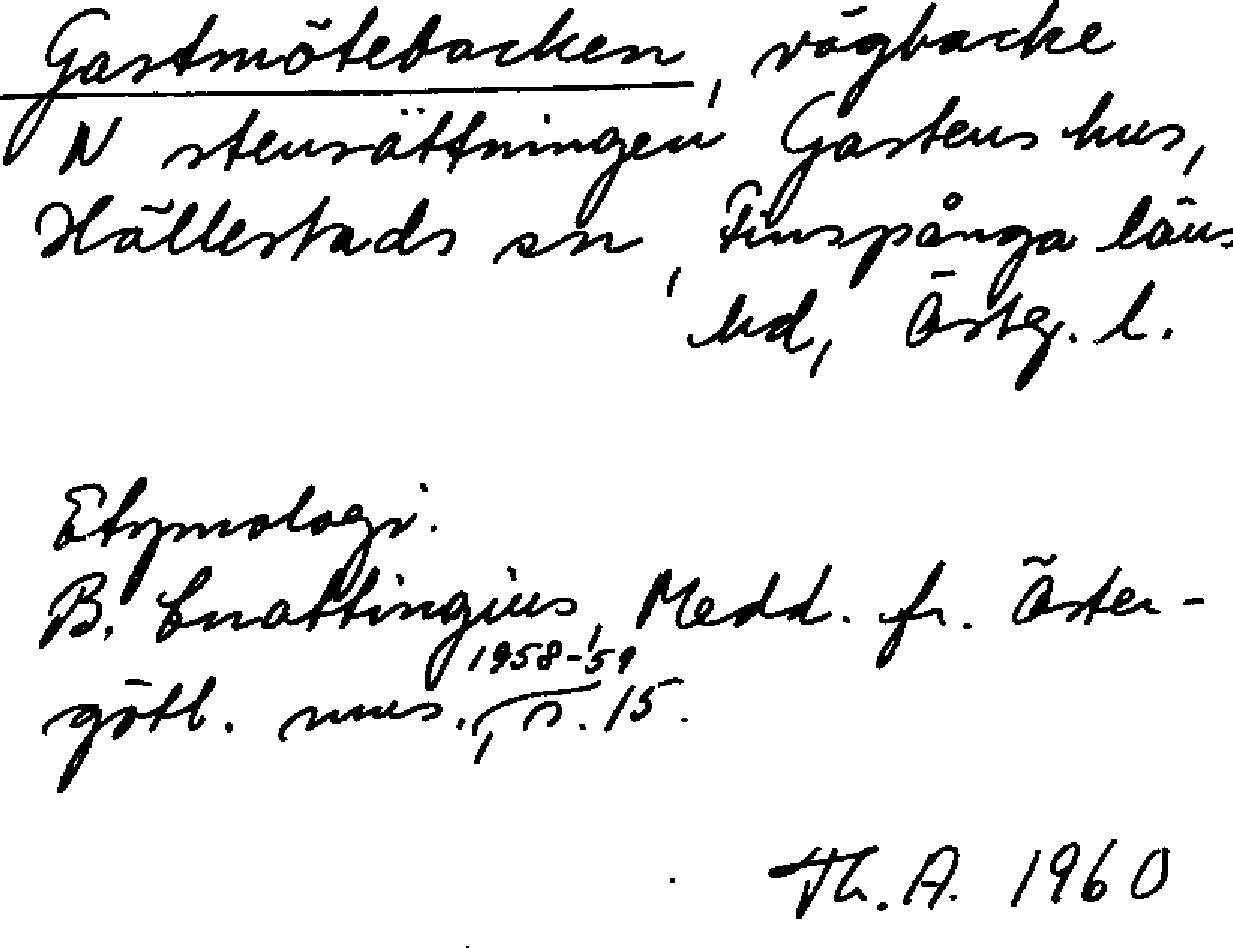 Gastmötebacken, vägbacke
N stensättningen Gastens hus,
Hällestads sn, Finspånga läns
hd, Österg. l.
Etymologi.
B. Cnattingius, Medd. fr. Öster-
götl. mus., 1958-59, s. 15.
Th. A. 1960